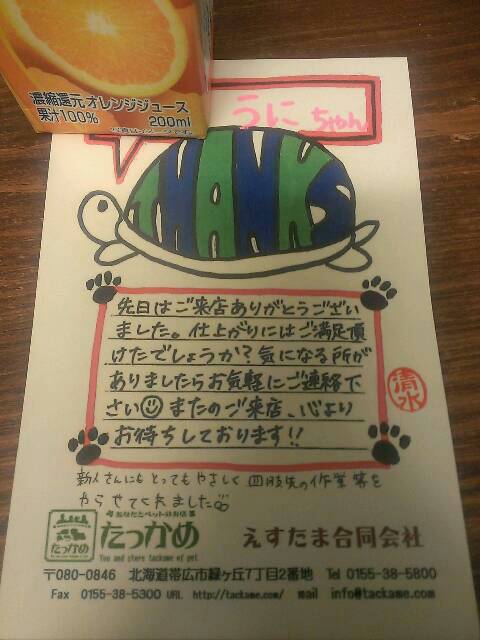 濃縮還元オレンジジュース
果汁100% 200ml
うにちゃん
THANKS
先日はご来店ありがとうござい
ました。仕上がりにはご満足頂
けたでしょうか？気になる所が
ありましたらお気軽にご連絡下
さい☺またのご来店、心より
お待ちしております!!
清水
新人さんにもとってもやさしく四肢先の作業等を
やらせてくれました
あなたとペットのお店
たっかめ
たっかめ
You and store tackame of pet
えすたま合同会社
〒080-0846 北海道帯広市緑ヶ丘7丁目2番地 Tel 0155-38-5800
Fax 0155-38-5300 URL http://tackame.com/ mail info@tackame.com